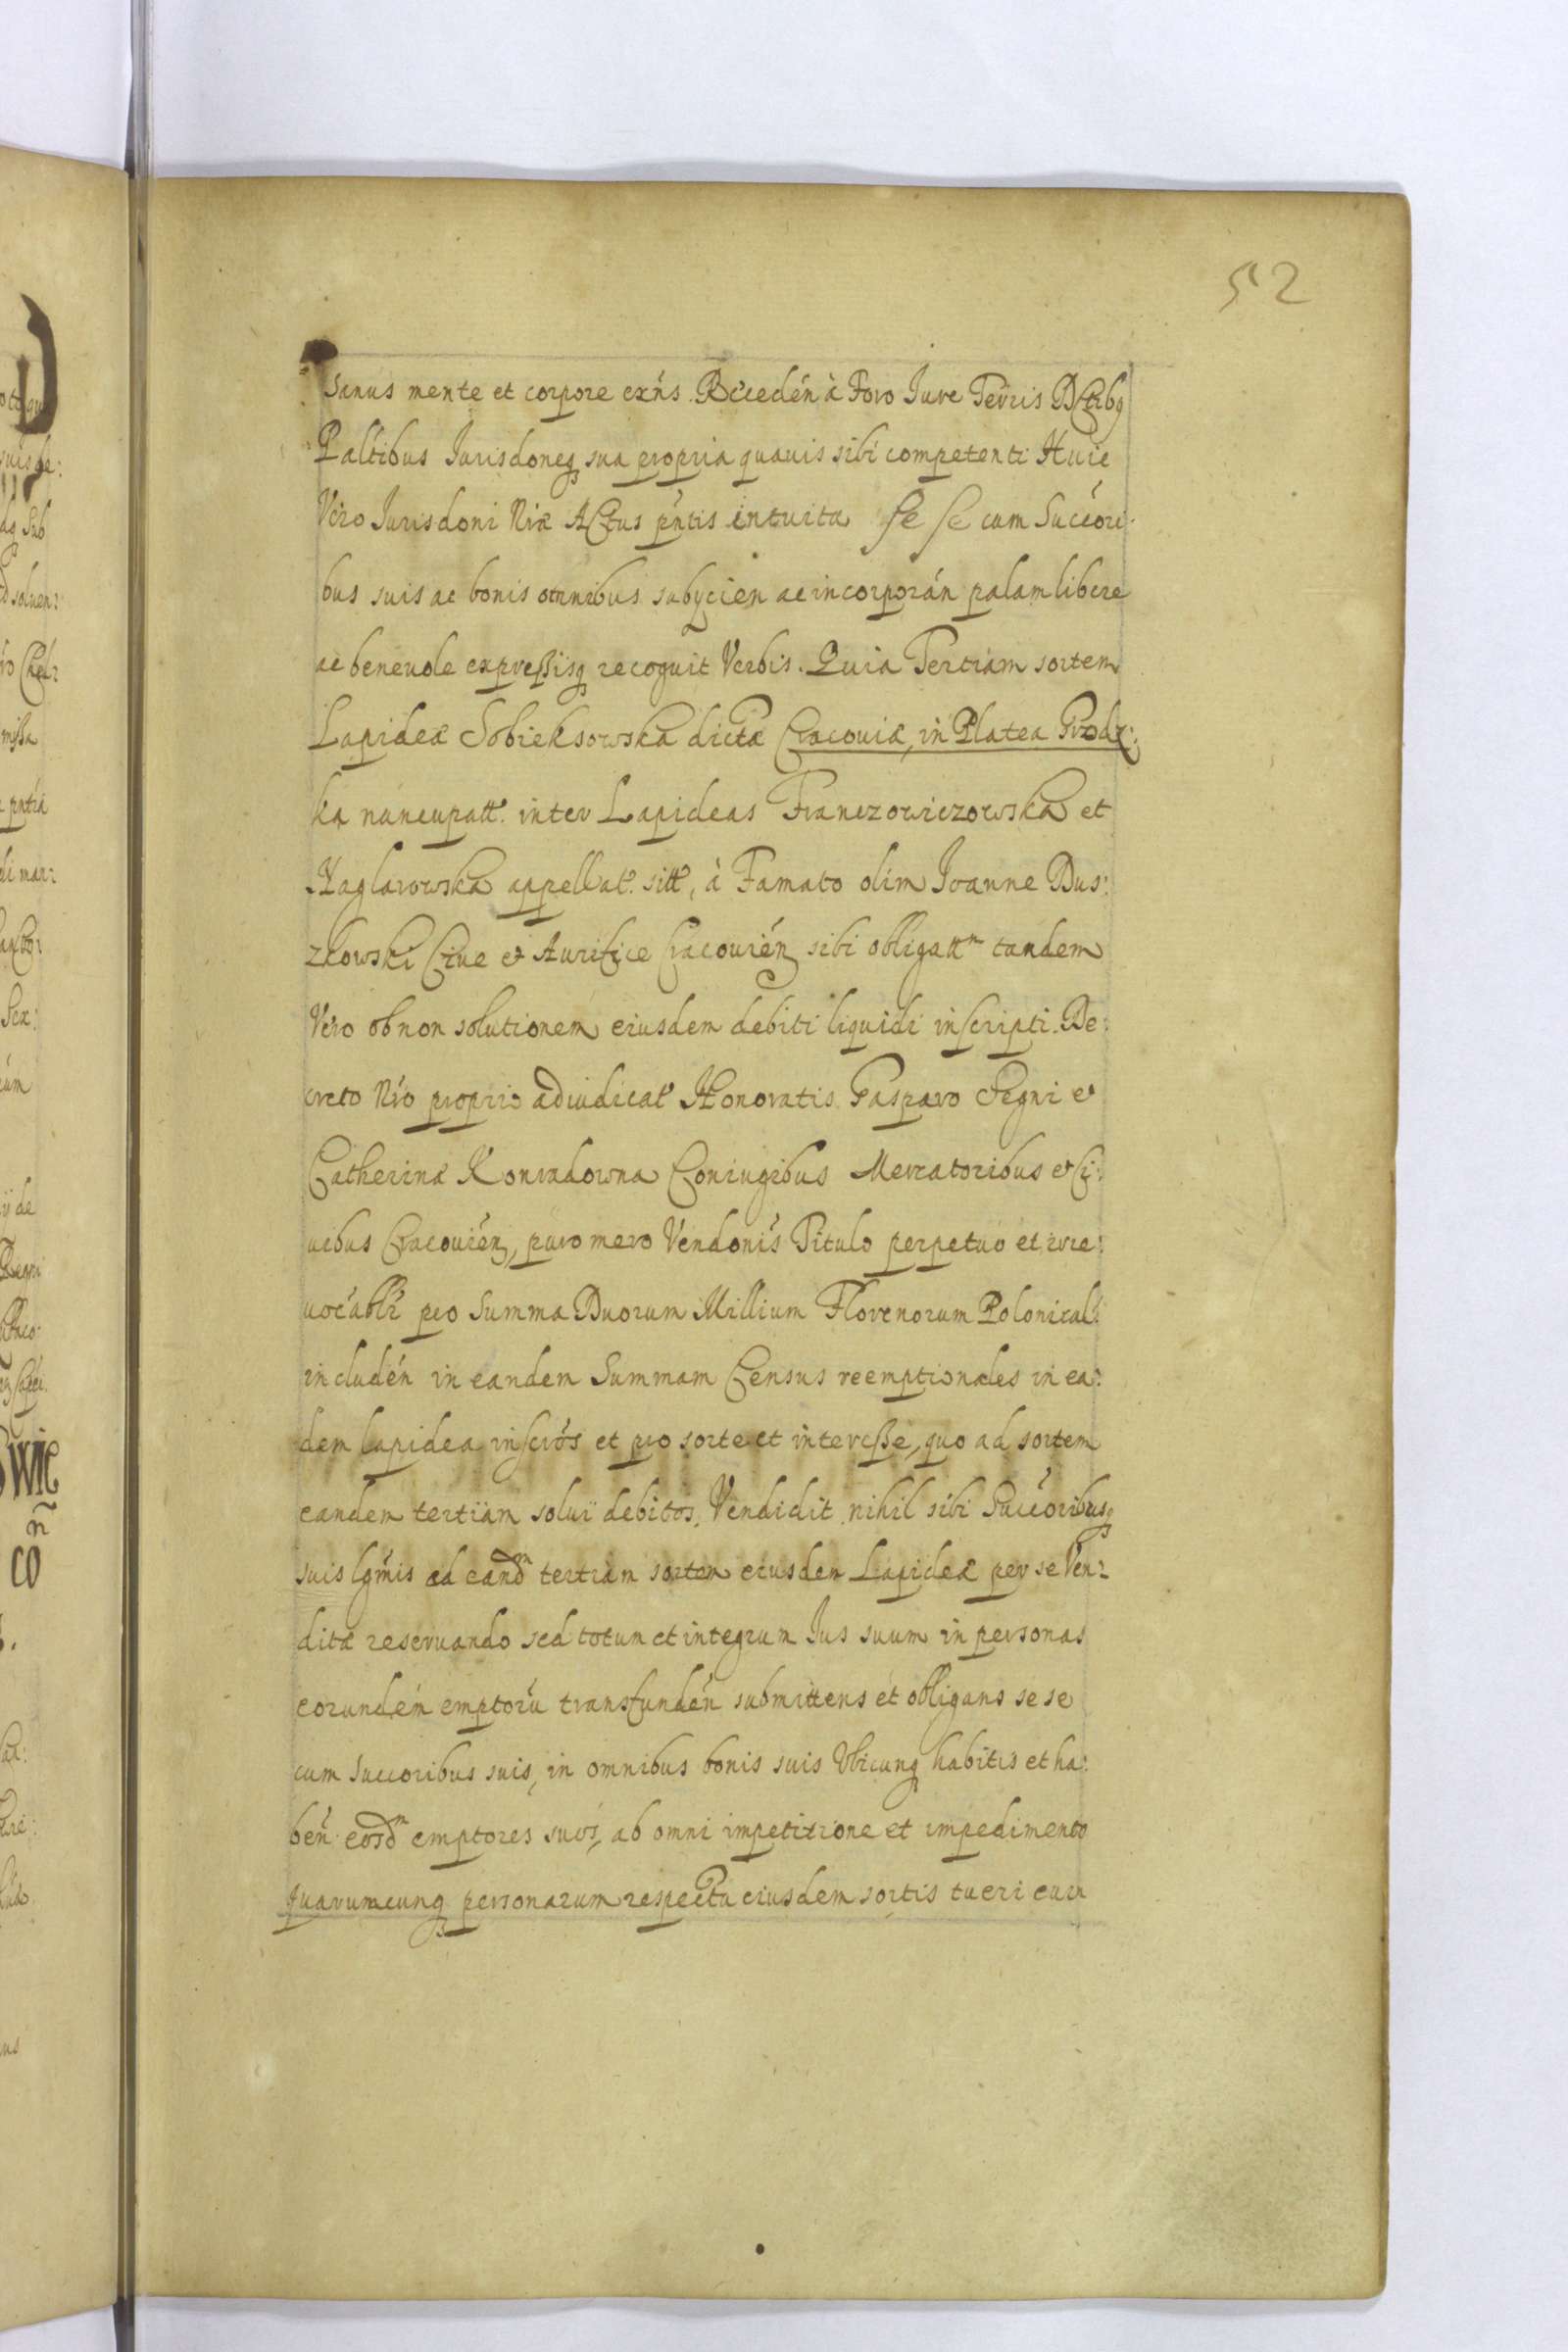 52
Sanus mente et corpore exńs. Recedén à Foro Jure Terris Dctibq
Paltibus Jurisdoneq sua propria quauis sibi competenti Huic
Vero Jurisdoni Nrae Actus pńtis intuitu se se cum Succori:
bus suis ac bonis omnibus subycien ac incorporán palam libere
ac beneuole expreßisq recoguit Verbis. Quia Tertiam sortem
Lapideæ Sobieksowska dictæ Cracouiæ, in Platea Grodz:
ka nuncupatt. inter Lapideas Franczowiczowska et
Haglarowska appellat. sitt, à Famato olim Joanne Bus:
zkowski Ciue et Aurifice Cracouién sibi obligattm tandem
Vero ob non solutionem eiusdem debiti liquidi inscripti. De:
creto Nro proprio adiudicat Honoratis Gasparo Segni et
Catherinæ Konradowna Coniugibus Mercatoribus et Ci:
uibus Cracouién, puro mero Vendonis Titulo perpetuo et irre:
uocabli pro Summa Duorum Millium Florenorum Polonical:
includén in eandem Summam Census reemptionales in ea:
dem lapidea inscros et pro sorte et intereße, quo ad sortem
eandem tertiam solui debitos, Vendidit nihil sibi Succoribusq
suis lgmis ad eandm tertiam sortem eiusdem Lapideæ per se Ven:
ditæ reseruando sed totum et integrum Jus suum in personas
eorundém emptorú transfundén submittens et obligans se se
cum Succoribus suis, in omnibus bonis suis Vbicunq habitis et ha:
beń eosdm emptores suos, ab omni impetitione et impedimento
quarumcunq personarum respectu eiusdem sortis tueri eum